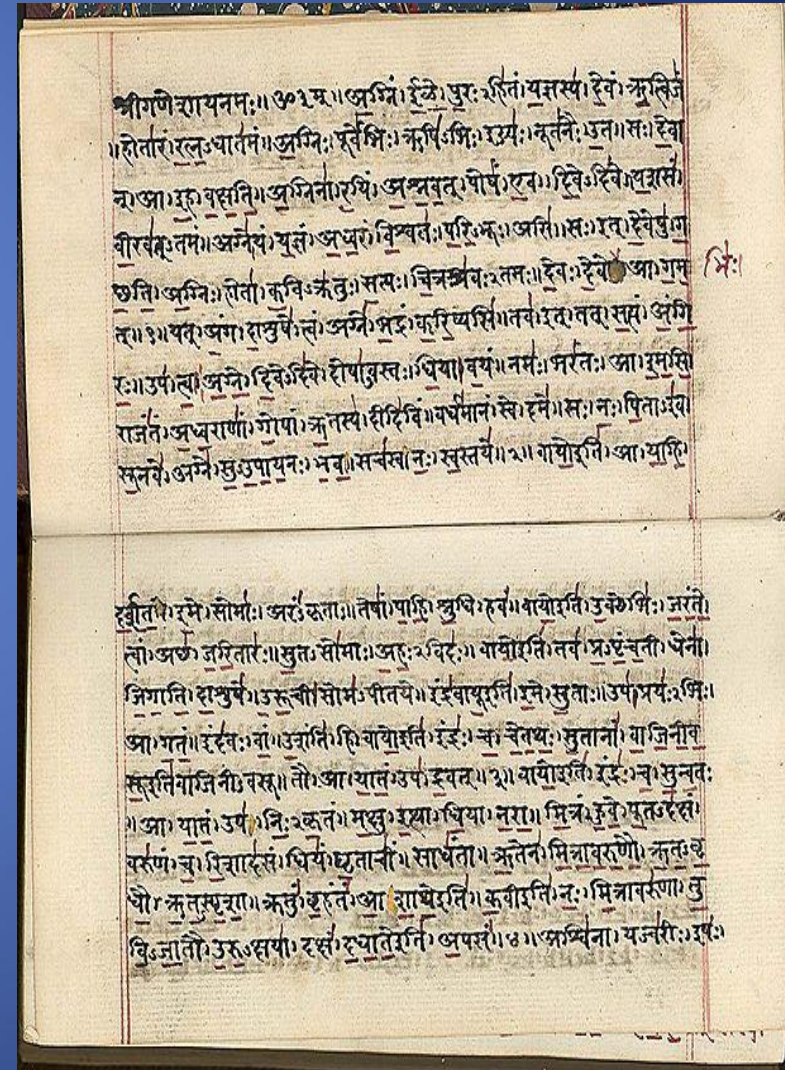 श्रीगणेशायनमः॥ॐ३म्॥अग्निं।ईळे।पुरःऽहितं।यज्ञस्य।देवं।ऋत्विजं
॥होतारं।रत्नऽधातमं॥अग्निः।पूर्वेभिः।ऋषिऽभिः।ईड्यः।नूतनैः।उत॥सः।देवा
न्।आ।इह।वक्षति॥अग्निना।रयिं।अश्नवत्।पोषं।एव।दिवेऽदिवे॥यशसं
वीरवत्ऽतमं॥अग्ने।यं।यज्ञं।अध्वरं।विश्वतः।परिऽभूः।असि॥सः।इत्।देवेषु।ग
छति।अग्निः।होता।कविऽक्रतुः।सत्यः।चित्रश्रवःऽतमः॥देवः।देवे आ।गम
भिः।
त्॥१॥यत्।अंग।दाशुषे।त्वं।अग्ने।भद्रं।करिष्यसि॥तव।इत्।तत्।सत्यं।अंगि
रः॥उप।त्वा।अग्ने।दिवेऽदिवे।दोषाऽवस्तः।धिया।वयं॥नमः।भरंतः।आ।इमसि
राजंतं।अध्वराणां।गोपां।ऋतस्य।दीदिविं॥वर्धमानं।स्वे।दमे॥सः।नः।पिताऽइव।
सूनवे।अग्ने।सुऽउपायनः।भव॥सचस्व।नः।स्वस्तये॥२॥वायोइति।आ।याहि।
दर्शत।इमे।सोमाः।अरंऽकृताः॥तेषां।पाहि।श्रुधि।हवं॥वायोइति।उक्थेभिः।जरंते।
त्वां।अछ।जरितारः॥सुतऽसोमाः।अहःऽविदः॥वायोइति।तव।प्रऽपृंचती।धेना।
जिगाति।दाशुषे॥उरूची।सोमऽपीतये॥इंद्रवायूइति।इमे।सुताः॥उप।प्रयःऽभिः।
आ।गतं॥इंदवः।वां।उशंति।हि।वायोइति।इंद्रः।च।चेतथः।सुतानां।वाजिनीव
सूइतिवाजिनीऽवसू॥तौ।आ।यातं।उप।द्रवत्॥३॥वायोइति।इंद्रः।च।सुन्वतः
॥आ।यातं।उप।निःऽकृतं॥मक्षु।इत्था।धिया।नरा॥मित्रं।हुवे।पूतऽदक्षं।
वरुणं।च।रिशादसं।धियं।घृताचीं।साधंता॥ऋतेन।मित्रावरुणौ।ऋतऽवृ
धौ।ऋतऽस्पृशा॥क्रतुं।बृहंतं।आशाथेइति॥कवीइति।नः।मित्रावरुणा।तु
विऽजातौ।उरुऽक्षया।दक्षं।दधातेइति।अपसं॥४॥अश्विना।यज्वरीः।इषः।